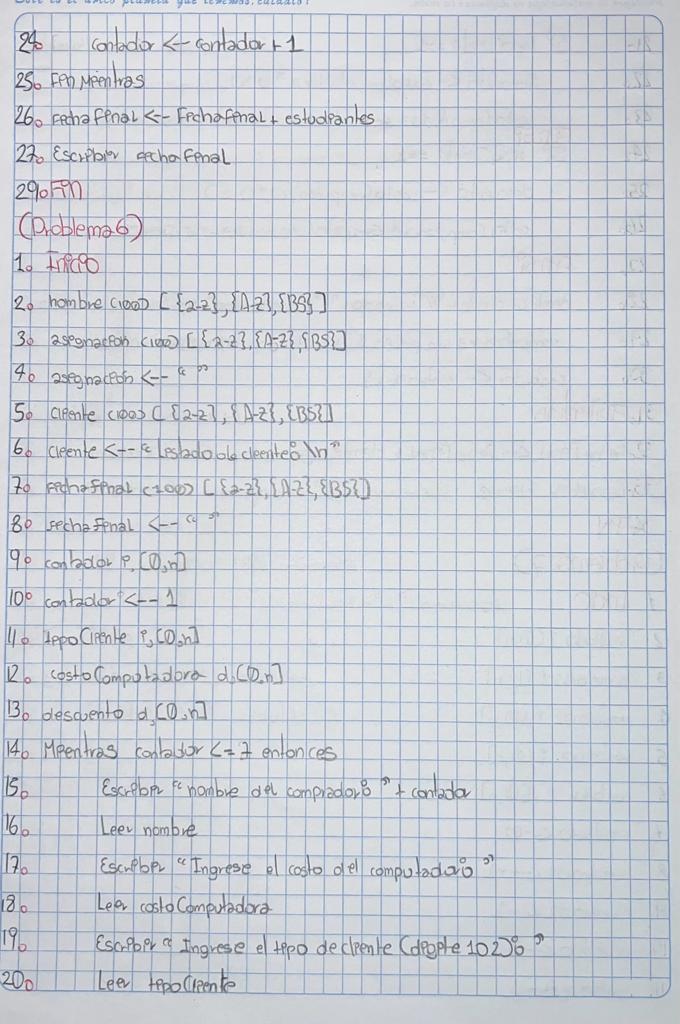 24. contador <-- contador + 1
25. Fin Mientras
26. FechaFinal <-- FechaFinal + estudiantes
27. Escribir FechaFinal
29. Fin
(Problema 6)
1. Inicio
2. nombre (100) [{a-z},{A-Z},{BS}]
3. asignacion (100) [{a-z},{A-Z},{BS}]
4. asignación <-- “ ”
5. cliente (100) [{a-z},{A-Z},{BS}]
6. cliente <-- “Listado de cliente: \n”
7. Fechafinal (100) [{a-z},{A-Z},{BS}]
8. Fechafinal <-- “ ”
9. contador i, [0,n]
10. contador <-- 1
11. tipoCliente i, [0,n]
12. costoComputadora d, [0,n]
13. descuento d, [0,n]
14. Mientras contador <= 7 entonces
15. Escribir “nombre del comprador: ” + contador
16. Leer nombre
17. Escribir “Ingrese el costo del computador: ”
18. Leer costoComputadora
19. Escribir “Ingrese el tipo de cliente (digite 1 o 2): ”
20. Leer tipoCliente